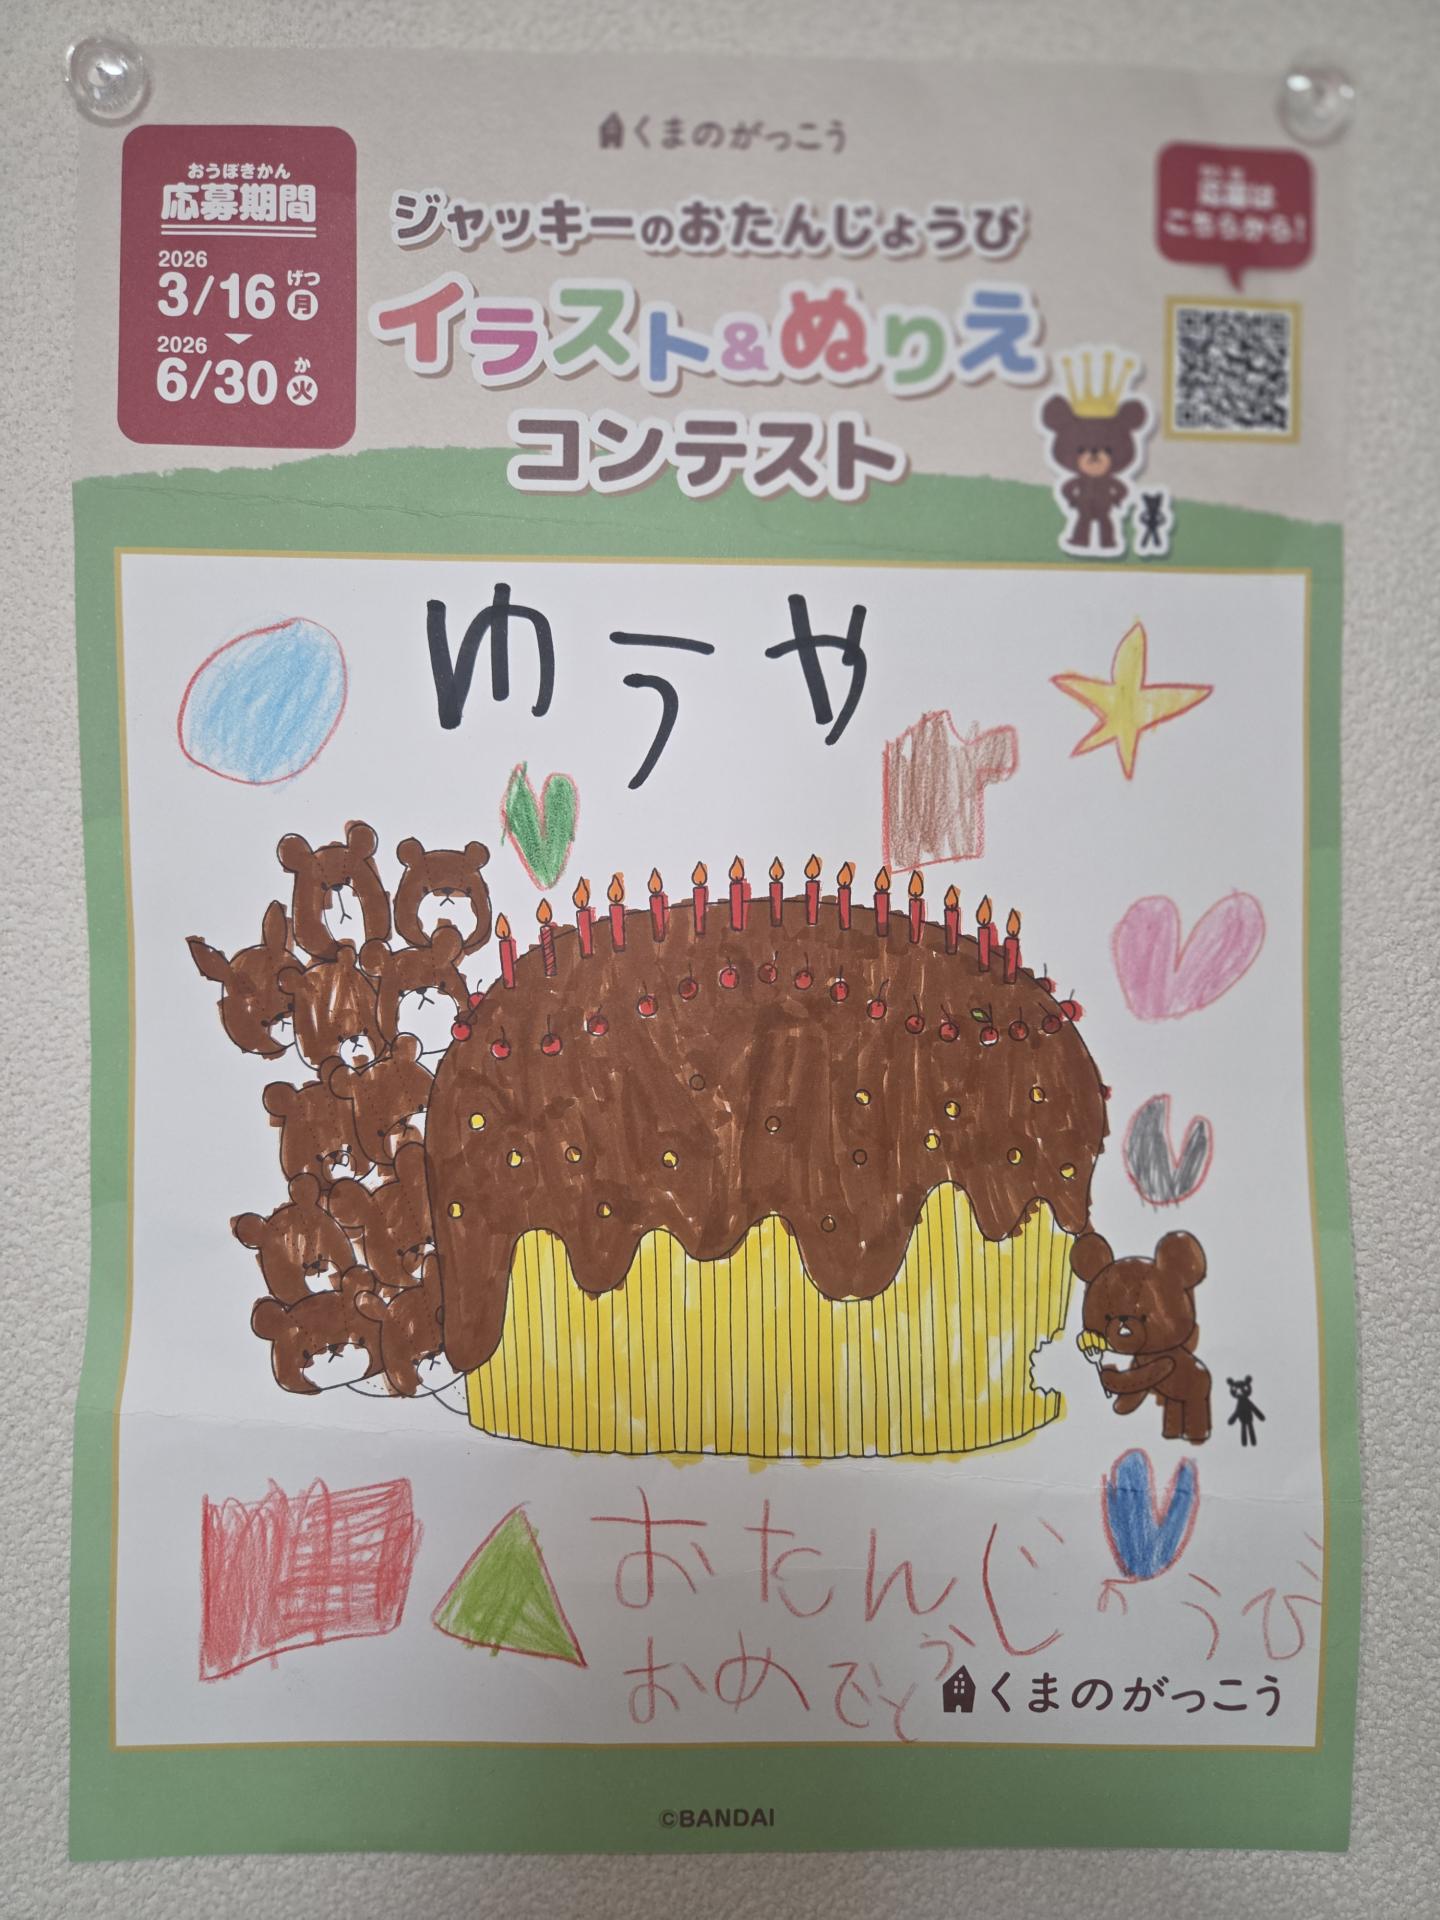 くまのがっこう
おうぼきかん
応募期間
2026
3/16 げつ
月
2026
6/30 か
火
ジャッキーのおたんじょうび
イラスト&ぬりえ
コンテスト
応募は
こちらから!
ゆうや
おたんじょうび
おめでとう
くまのがっこう
©BANDAI